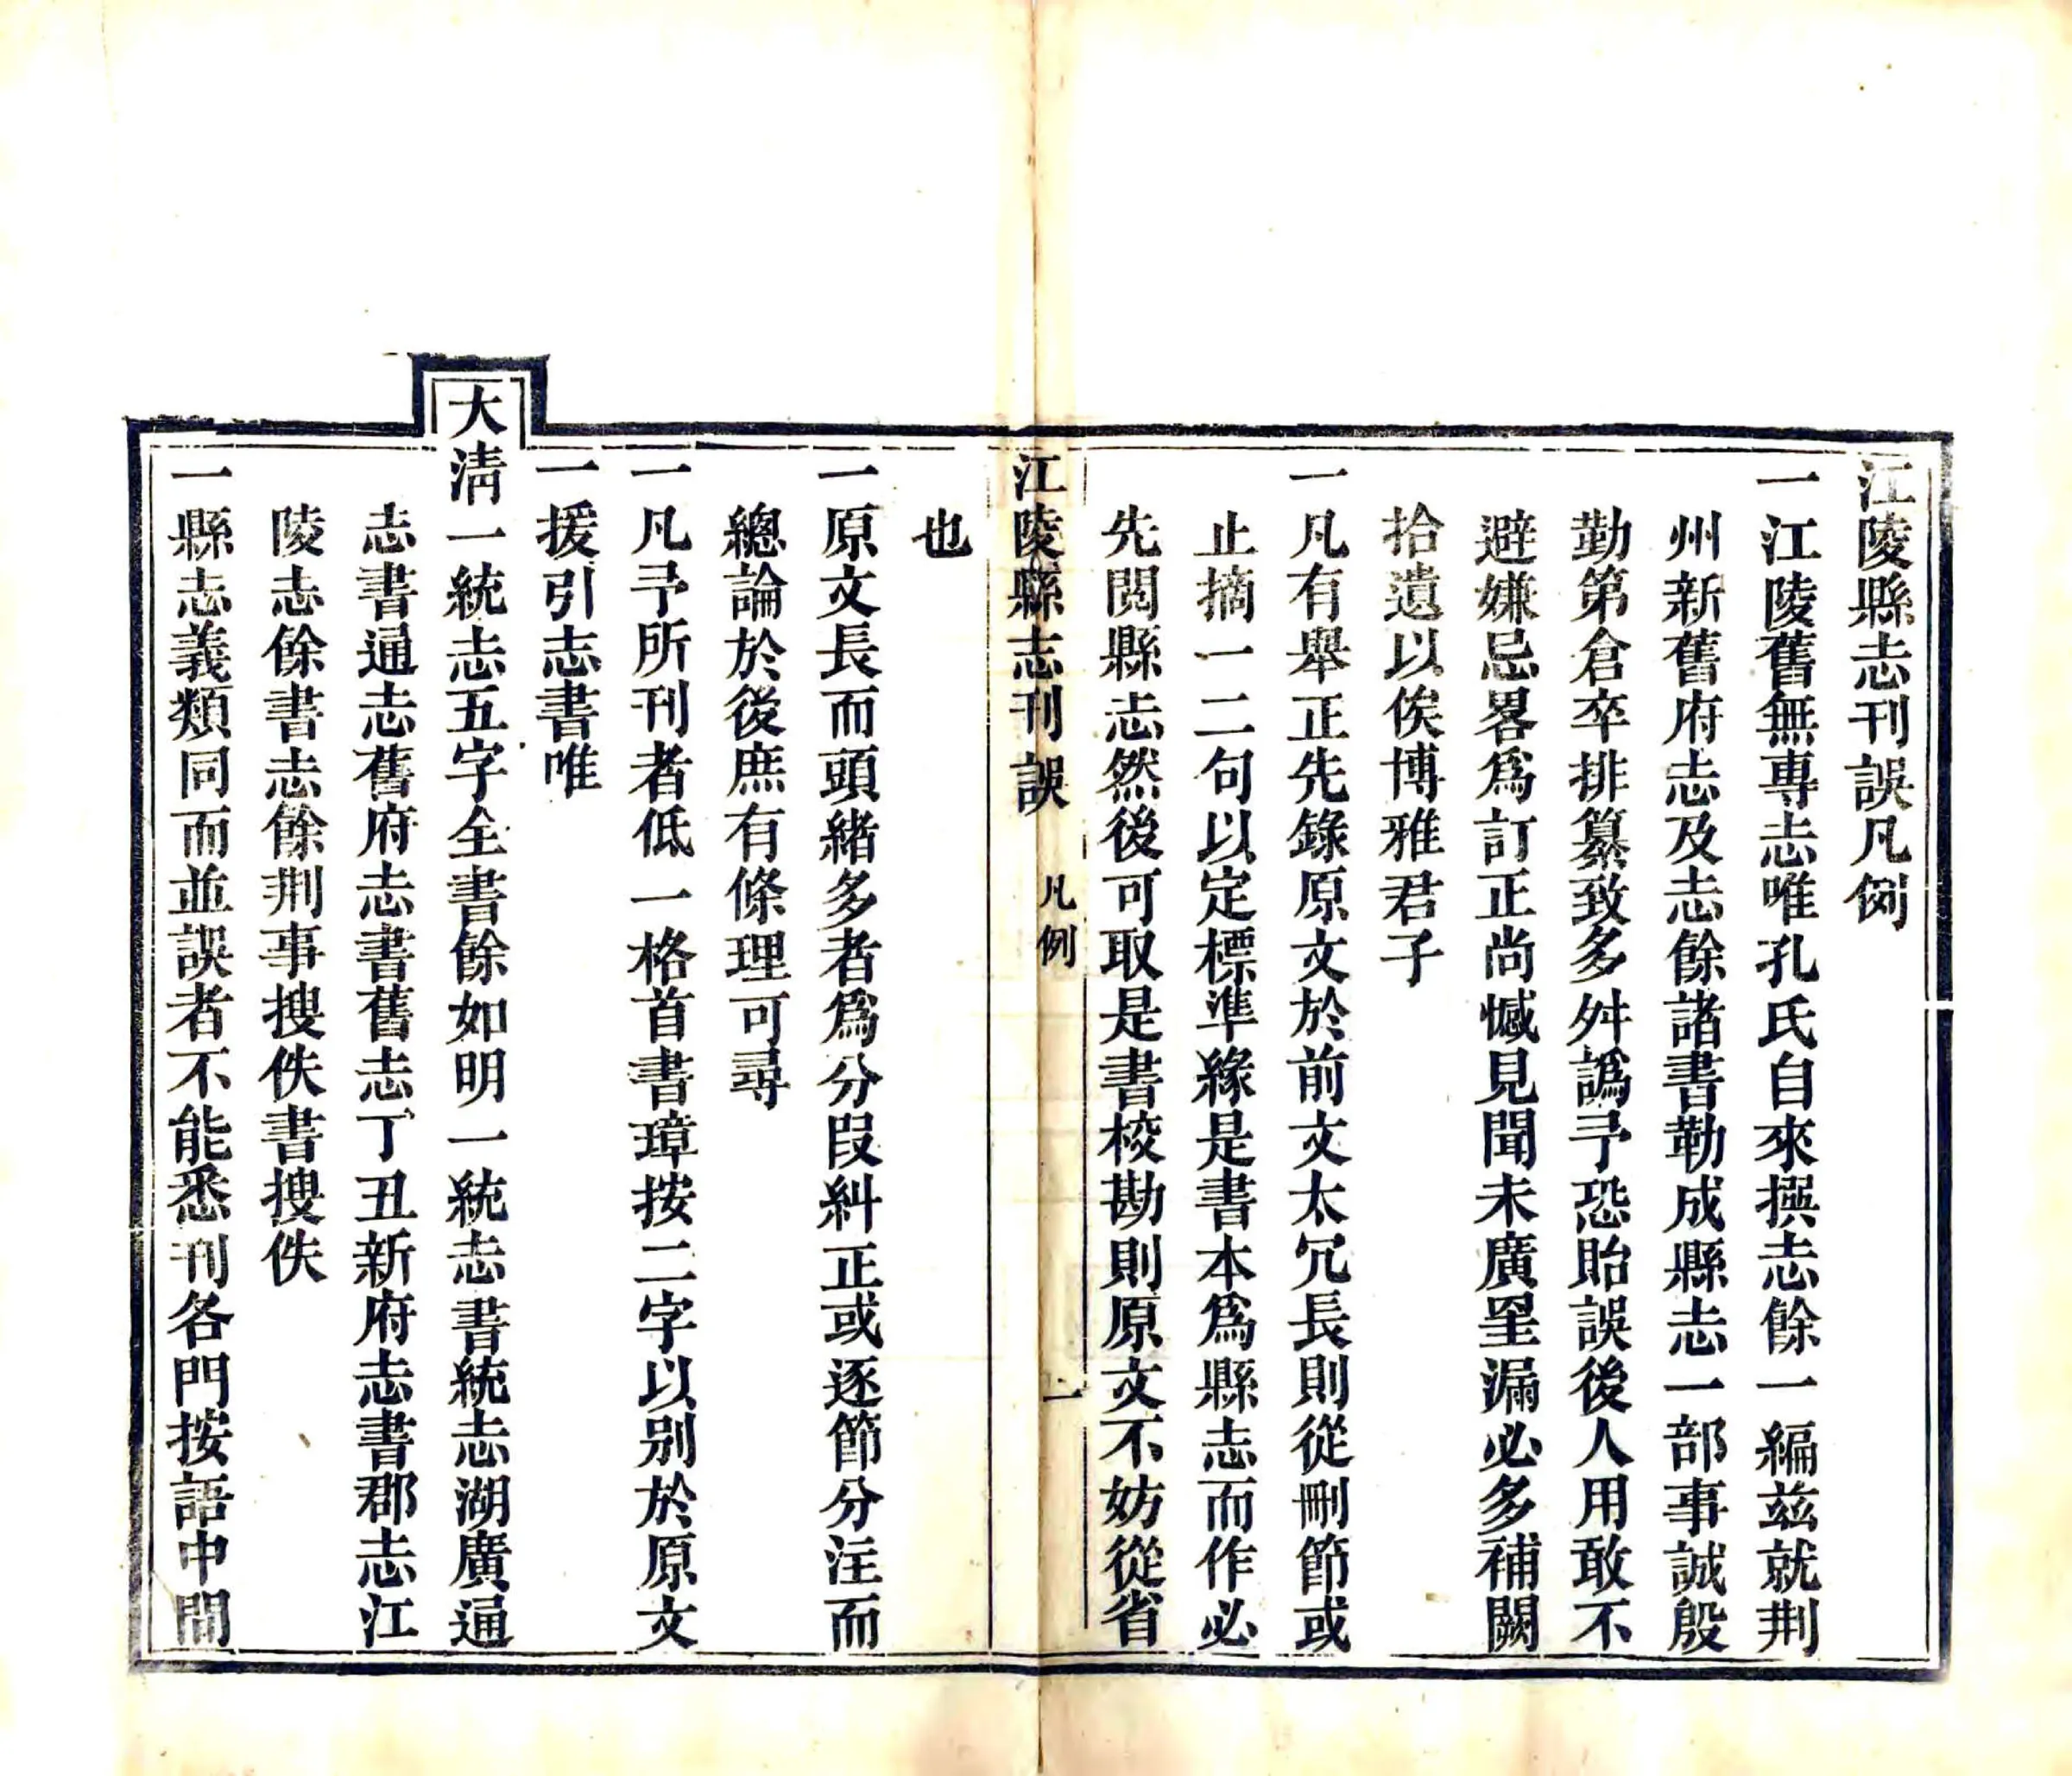 江陵縣志刊誤凡例
一江陵舊無專志唯孔氏自來撰志餘一編兹就荆
州新舊府志及志餘諸書勒成縣志一部事誠殷
勤第倉卒排纂致多舛譌予恐貽誤後人用敢不
避嫌忌畧爲訂正尚憾見聞未廣罣漏必多補闕
拾遺以俟博雅君子
一凡有舉正先錄原文於前文太冗長則從刪節或
止摘一二句以定標準緣是書本爲縣志而作必
先閱縣志然後可取是書校勘則原文不妨從省
江陵縣志刊誤 凡例 一
也
一原文長而頭緒多者爲分段糾正或逐節分注而
總論於後庶有條理可尋
一凡予所刊者低一格首書璋按二字以别於原文
一援引志書唯
大清一統志五字全書餘如明一統志書統志湖廣通
志書通志舊府志書舊志丁丑新府志書郡志江
陵志餘書志餘荆事搜佚書搜佚
一縣志義類同而並誤者不能悉刊各門按語中間